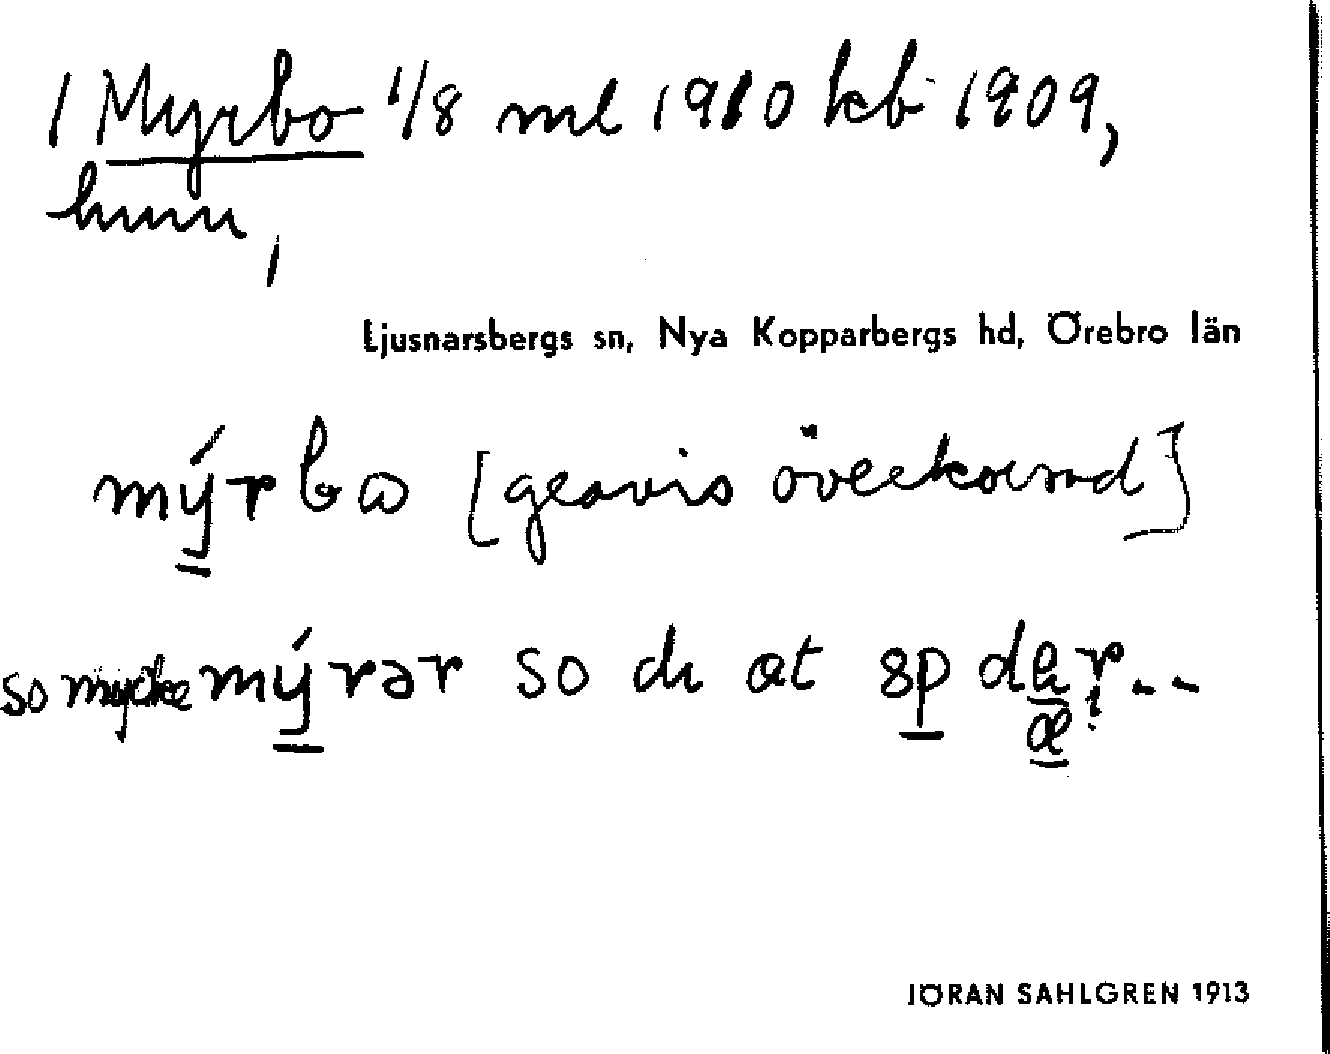 1 Myrbo 1/8 ml 1910 kb 1909,
hmn,
Ljusnarsbergs sn, Nya Kopparbergs hd, Örebro län
mýrbɷ [gravis överkorsad]
so mycke mýrər so dɩ
JÖRAN SAHLGREN 1913